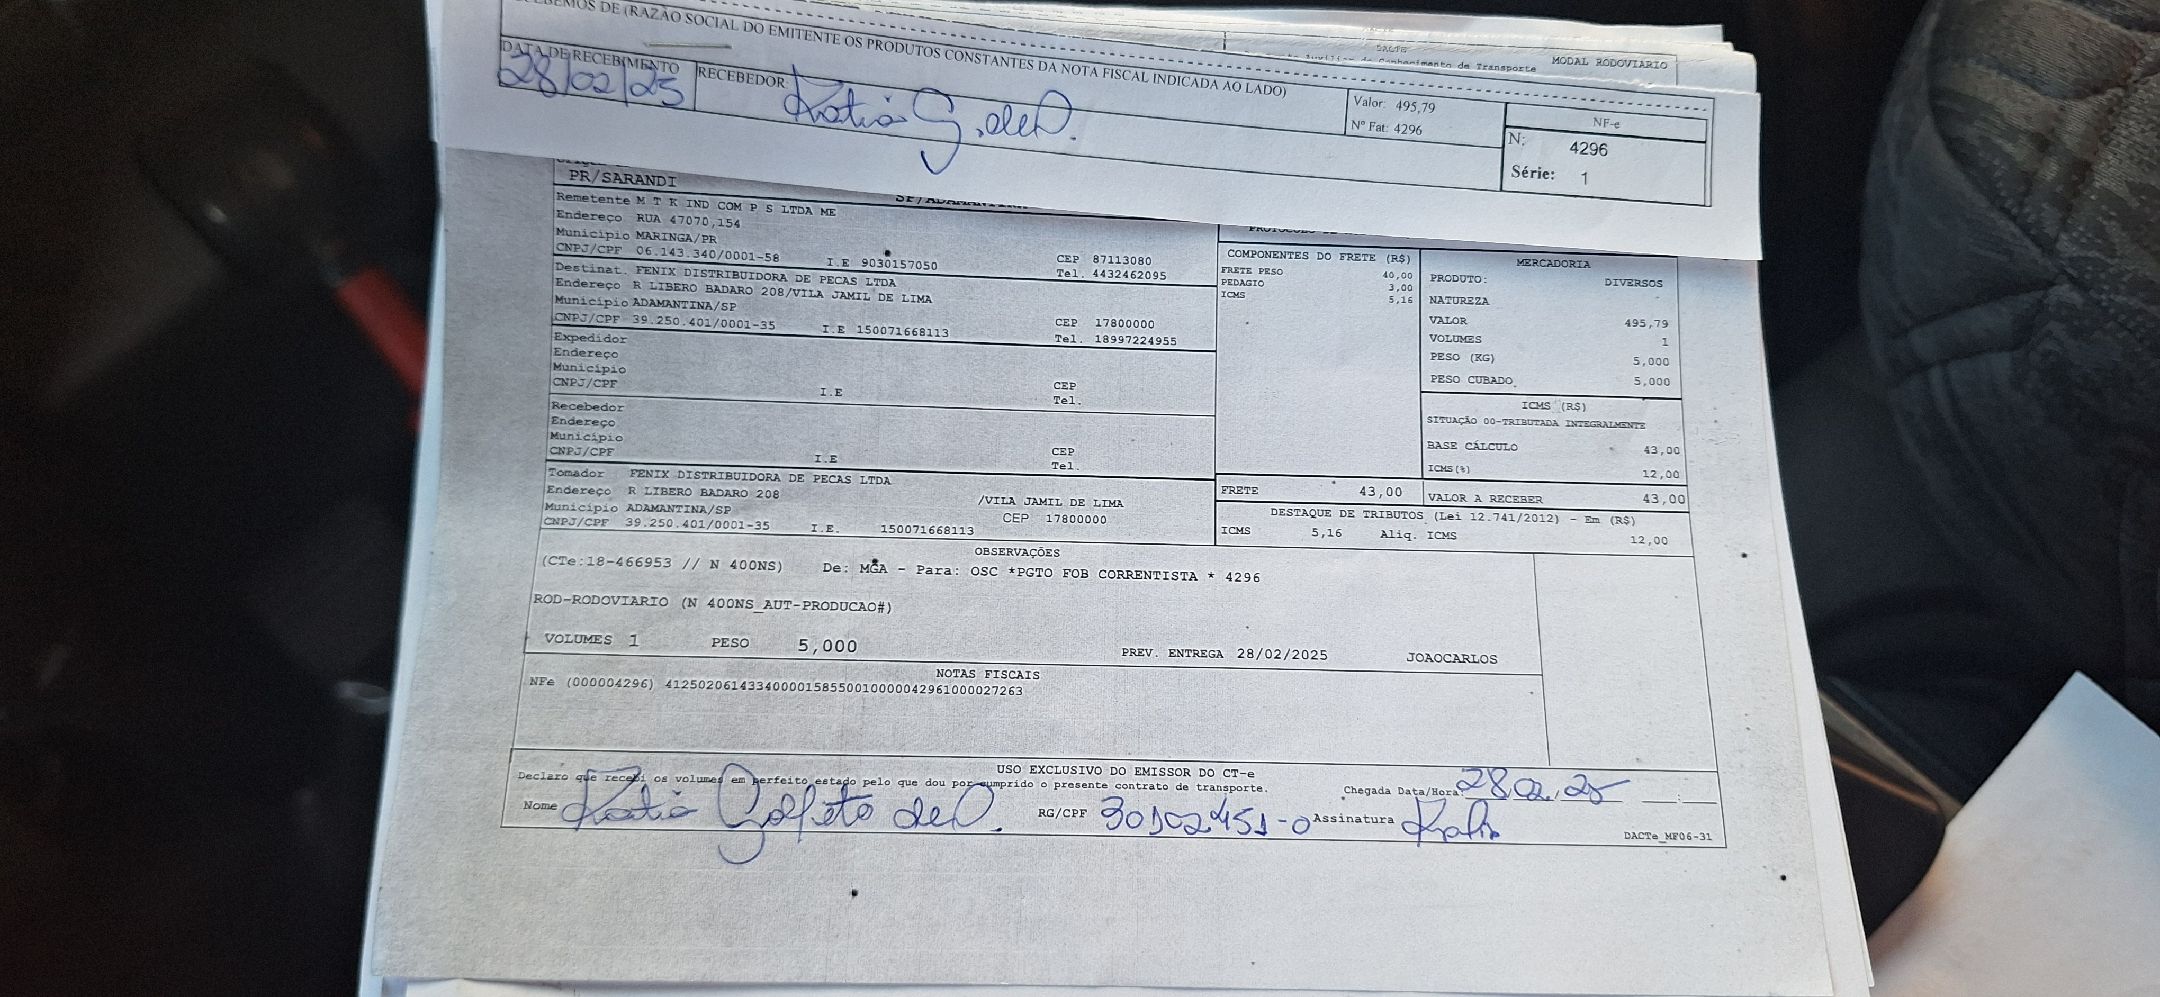 DE (RAZÃO SOCIAL DO EMITENTE OS PRODUTOS CONSTANTES DA NOTA FISCAL INDICADA AO LADO)
DACTE
Conhecimento de Transporte MODAL RODOVIARIO
DATA DE RECEBIMENTO RECEBEDOR: Valor: 495,79
28/02/25 Katia G. de O. Nº Fat: 4296
NF-e
N: 4296
Série: 1
PR/SARANDI SP/ADAMANTINA
Remetente M T K IND COM P S LTDA ME
Endereço RUA 47070,154
Municipio MARINGA/PR CEP 87113080
CNPJ/CPF 06.143.340/0001-58 I.E 9030157050 Tel. 4432462095
Destinat. FENIX DISTRIBUIDORA DE PECAS LTDA
Endereço R LIBERO BADARO 208/VILA JAMIL DE LIMA
Municipio ADAMANTINA/SP CEP 17800000
CNPJ/CPF 39.250.401/0001-35 I.E 150071668113 Tel. 18997224955
Expedidor
Endereço
Municipio CEP
CNPJ/CPF I.E Tel.
Recebedor
Endereço
Municipio CEP
CNPJ/CPF I.E Tel.
Tomador FENIX DISTRIBUIDORA DE PECAS LTDA
Endereço R LIBERO BADARO 208 /VILA JAMIL DE LIMA
Municipio ADAMANTINA/SP CEP 17800000
CNPJ/CPF 39.250.401/0001-35 I.E. 150071668113
COMPONENTES DO FRETE (R$)
FRETE PESO 40,00
PEDAGIO 3,00
ICMS 5,16
FRETE 43,00
MERCADORIA
PRODUTO: DIVERSOS
NATUREZA
VALOR 495,79
VOLUMES 1
PESO (KG) 5,000
PESO CUBADO 5,000
ICMS (R$)
SITUAÇÃO 00-TRIBUTADA INTEGRALMENTE
BASE CÁLCULO 43,00
ICMS(%) 12,00
VALOR A RECEBER 43,00
DESTAQUE DE TRIBUTOS (Lei 12.741/2012) - Em (R$)
ICMS 5,16 Aliq. ICMS 12,00
OBSERVAÇÕES
(CTe:18-466953 // N 400NS) De: MGA - Para: OSC *PGTO FOB CORRENTISTA * 4296
ROD-RODOVIARIO (N 400NS_AUT-PRODUCAO#)
VOLUMES 1 PESO 5,000 PREV. ENTREGA 28/02/2025 JOAOCARLOS
NOTAS FISCAIS
NFe (000004296) 41250206143340000158550010000042961000027263
USO EXCLUSIVO DO EMISSOR DO CT-e
Declaro que recebi os volumes em perfeito estado pelo que dou por cumprido o presente contrato de transporte. Chegada Data/Hora: 28.02.25
Nome Katia Golfeto de O. RG/CPF Assinatura Katia
DACTe_MF06-31